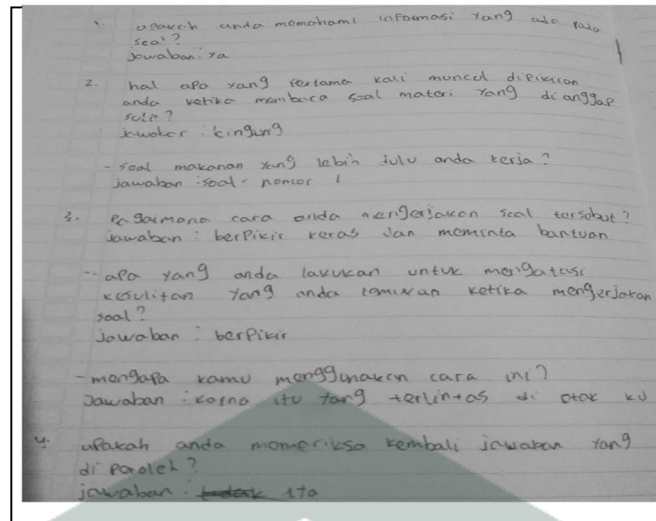 1. apakah anda memahami informasi yang ada pada
soal?
Jawaban: ya
2. hal apa yang pertama kali muncul dipikiran
anda ketika membaca soal materi yang dianggap
sulit?
jawaban : bingung
- soal makanan yang lebih dulu anda kerja?
Jawaban : soal - nomor 1
3. Bagaimana cara anda mengerjakan soal tersebut?
Jawaban : berpikir keras dan meminta bantuan
- apa yang anda lakukan untuk mengatasi
kesulitan yang anda temukan ketika mengerjakan
soal?
Jawaban : berpikir
- mengapa kamu menggunakan cara ini?
Jawaban : karna itu yang terlintas di otak ku
4. apakah anda memeriksa kembali jawaban yang
di peroleh?
jawaban :